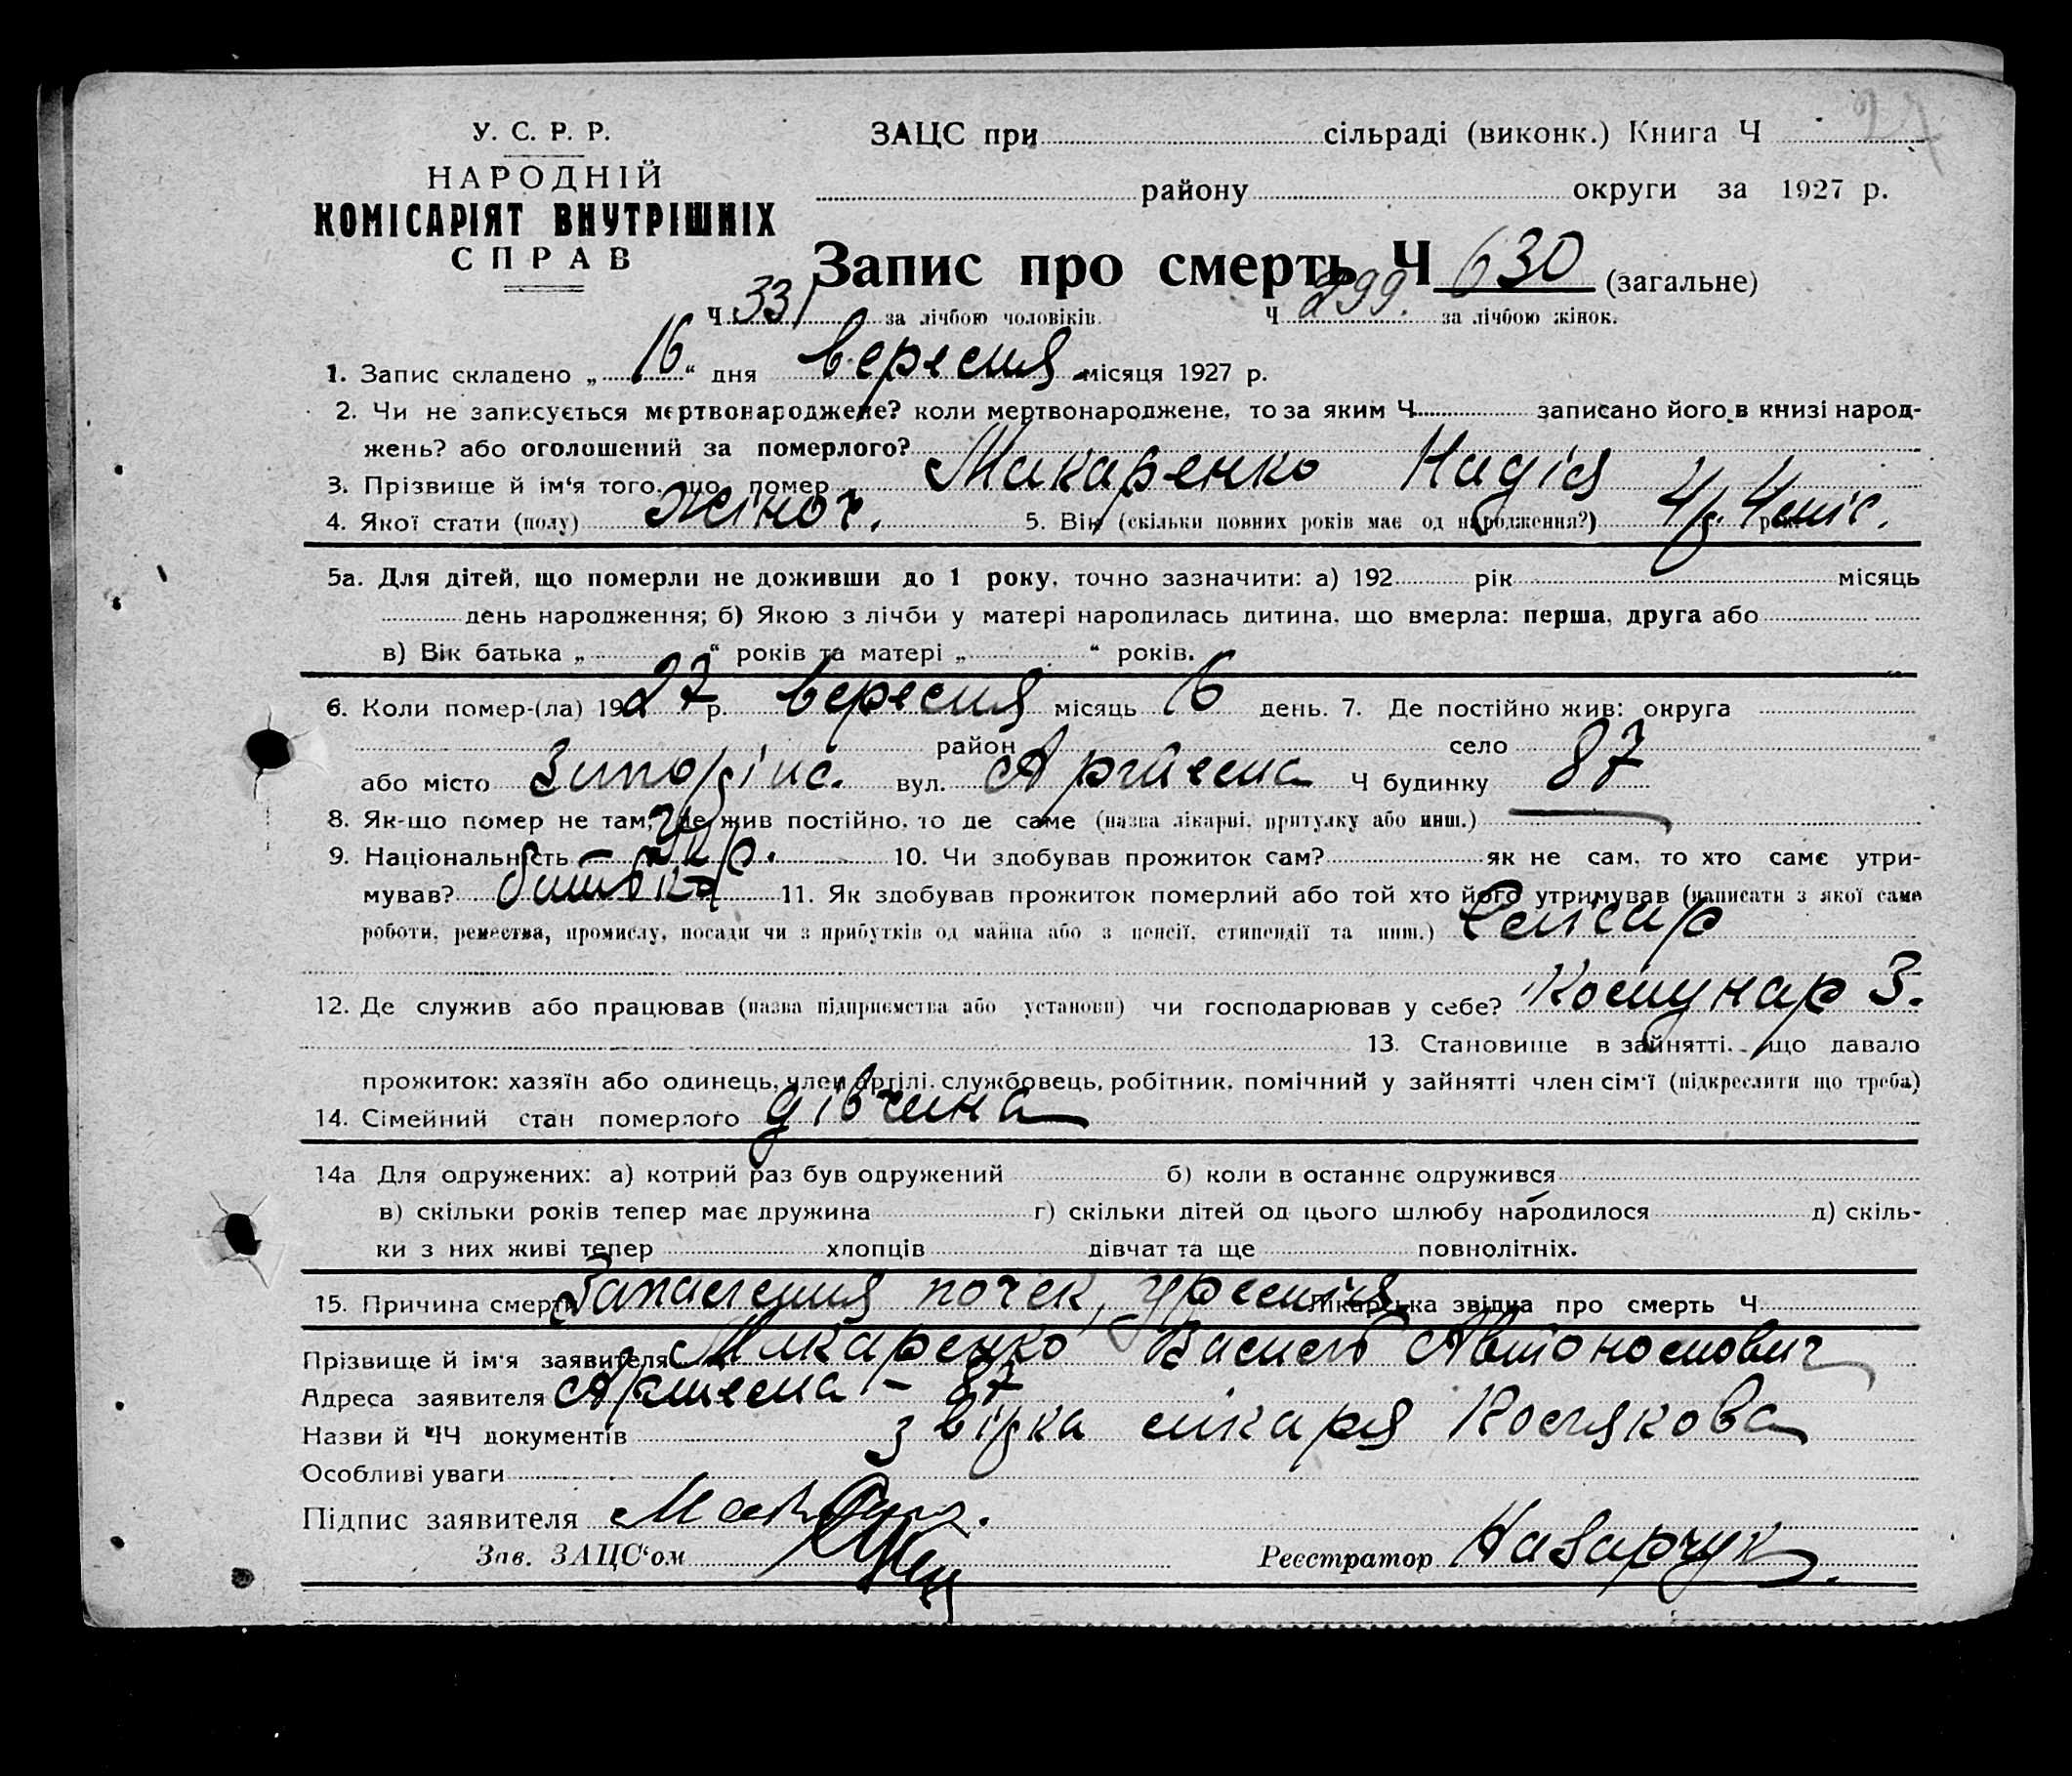 27
У. С. Р. Р.
НАРОДНІЙ
КОМІСАРІЯТ ВНУТРІШНІХ
СПРАВ
ЗАЦС при сільраді (виконк.) Книга Ч
району округи за 1927 р.
Запис про смерть Ч 630 (загальне)
Ч 331 за лічбою чоловіків. Ч 299. за лічбою жінок.
1. Запис складено „ 16 “ дня вересня місяця 1927 р.
2. Чи не записується мертвонароджене? коли мертвонароджене, то за яким Ч записано його в книзі народ-
жень? або оголошений за померлого?
3. Прізвище й ім‘я того, що помер Макаренко Надія
4. Якої стати (полу) жіноч. 5. Вік (скільки повних років має од народження?) 4 р. 4 міс.
5а. Для дітей, що померли не доживши до 1 року, точно зазначити: а) 192 рік місяць
день народження; б) Якою з лічби у матері народилась дитина, що вмерла: перша, друга або
в) Вік батька „ “ років та матері „ “ років.
6. Коли помер-(ла) 1927 р. вересня місяць 16 день. 7. Де постійно жив: округа
район село
або місто Запоріж. вул. Артема Ч будинку 87
8. Як-що помер не там, де жив постійно, то де саме (назва лікарні, притулку або инш.)
9. Національність Укр. 10. Чи здобував прожиток сам? як не сам, то хто саме утри-
мував? батько 11. Як здобував прожиток померлий або той хто його утримував (написати з якої саме
роботи, ремества, промислу, посади чи з прибутків од майна або з пенсії, стипендії та инш.) Слюсар
12. Де служив або працював (назва підприємства або установи) чи господарював у себе? Комунар З.
13. Становище в зайнятті, що давало
прожиток: хазяїн або одинець, член артілі, службовець, робітник, помічний у зайнятті член сім‘ї (підкреслити що треба)
14. Сімейний стан померлого дівчина
14а Для одружених: а) котрий раз був одружений б) коли в останнє одружився
в) скільки років тепер має дружина г) скільки дітей од цього шлюбу народилося д) скіль-
ки з них живі тепер хлопців дівчат та ще повнолітніх.
15. Причина смерти Запалення почек, уремія Лікарська звідка про смерть Ч
Прізвище й ім‘я заявителя Макаренко Василь Автономович
Адреса заявителя Артема - 87
Назви й ЧЧ документів звідка лікаря Костякова
Особливі уваги
Підпис заявителя
Зав. ЗАЦС‘ом Реєстратор Назарчук